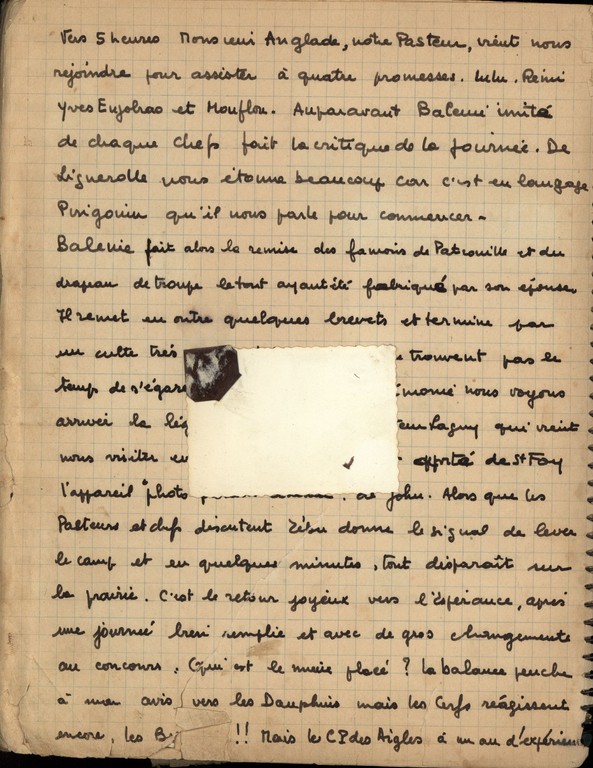 Vers 5 heures Monsieur Anglade, notre Pasteur, vient nous
rejoindre pour assister à quatre promesses. Lulu. Rémi
Yves Enjolras et Mouflon. Auparavant Balenie imité
de chaque Chefs fait la critique de la journée. De
Lignerolle nous étonne beaucoup car c'est en langage
Pingouin qu'il nous parle pour commencer.
Balenie fait alors la remise des fanions de Patrouille et du
drapeau de troupe le tout ayant été fabriqué par son épouse.
Il remet en outre quelques brevets et termine par
un culte très trouvent pas le
temps de s'égar nous voyons
arriver la Lagny qui vient
nous visiter en apporté de St Foy
l'appareil photo de John. Alors que les
Pasteurs et chefs discutent Zébu donne le signal de lever
le camp et en quelques minutes, tout disparaît sur
la prairie. C'est le retour joyeux vers l'Espérance, après
une journée bien remplie et avec de gros changements
au concours. Qui est le mieux placé ? La balance penche
à mon avis vers les Dauphins mais les Cerfs réagissent
encore, les B !! Mais le C.P des Aigles a un an d'expérience